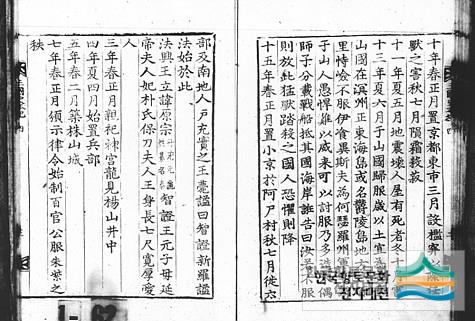 十年春正月置京都東市三月設檻穽以
獸之害秋七月隕霜殺菽
十一年夏五月地震壞人屋有死者冬十
十三年夏六月于山國歸服歲以土宜
山國在溟州正東海島或名欝陵島地
里恃嶮不服伊飡異斯夫為何瑟羅州軍
于山人愚悍難以威來可以計服乃多造 偶
師子分載戰船抵其國海岸誑告曰汝若不服
則放此猛獸踏殺之國人恐懼則降
十五年春正月置小京於阿尸村秋七月徙六
部及南地人戶充實之王薨諡曰智證新羅諡
法始於此
法興王立諱原宗 智證王元子母延
帝夫人妃朴氏保刀夫人王身長七尺寬厚愛
人
三年春正月親祀神宮龍見楊山井中
四年夏四月始置兵部
五年春二月築株山城
七年春正月頒示律令始制百官公服朱紫之
秩
1-62
한국향토문화
전자대전